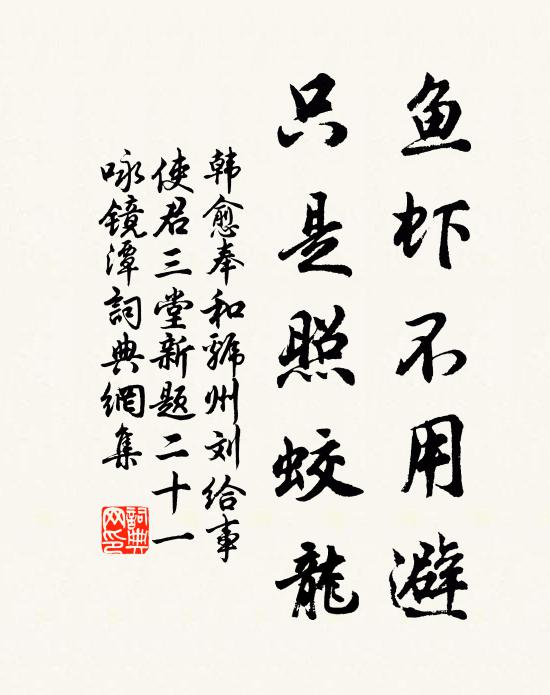 鱼虾不用避
只是照蛟龍
韩愈奉和虢州刘给事
使君三堂新题二十一
咏镜潭詞典網集
詞典网印